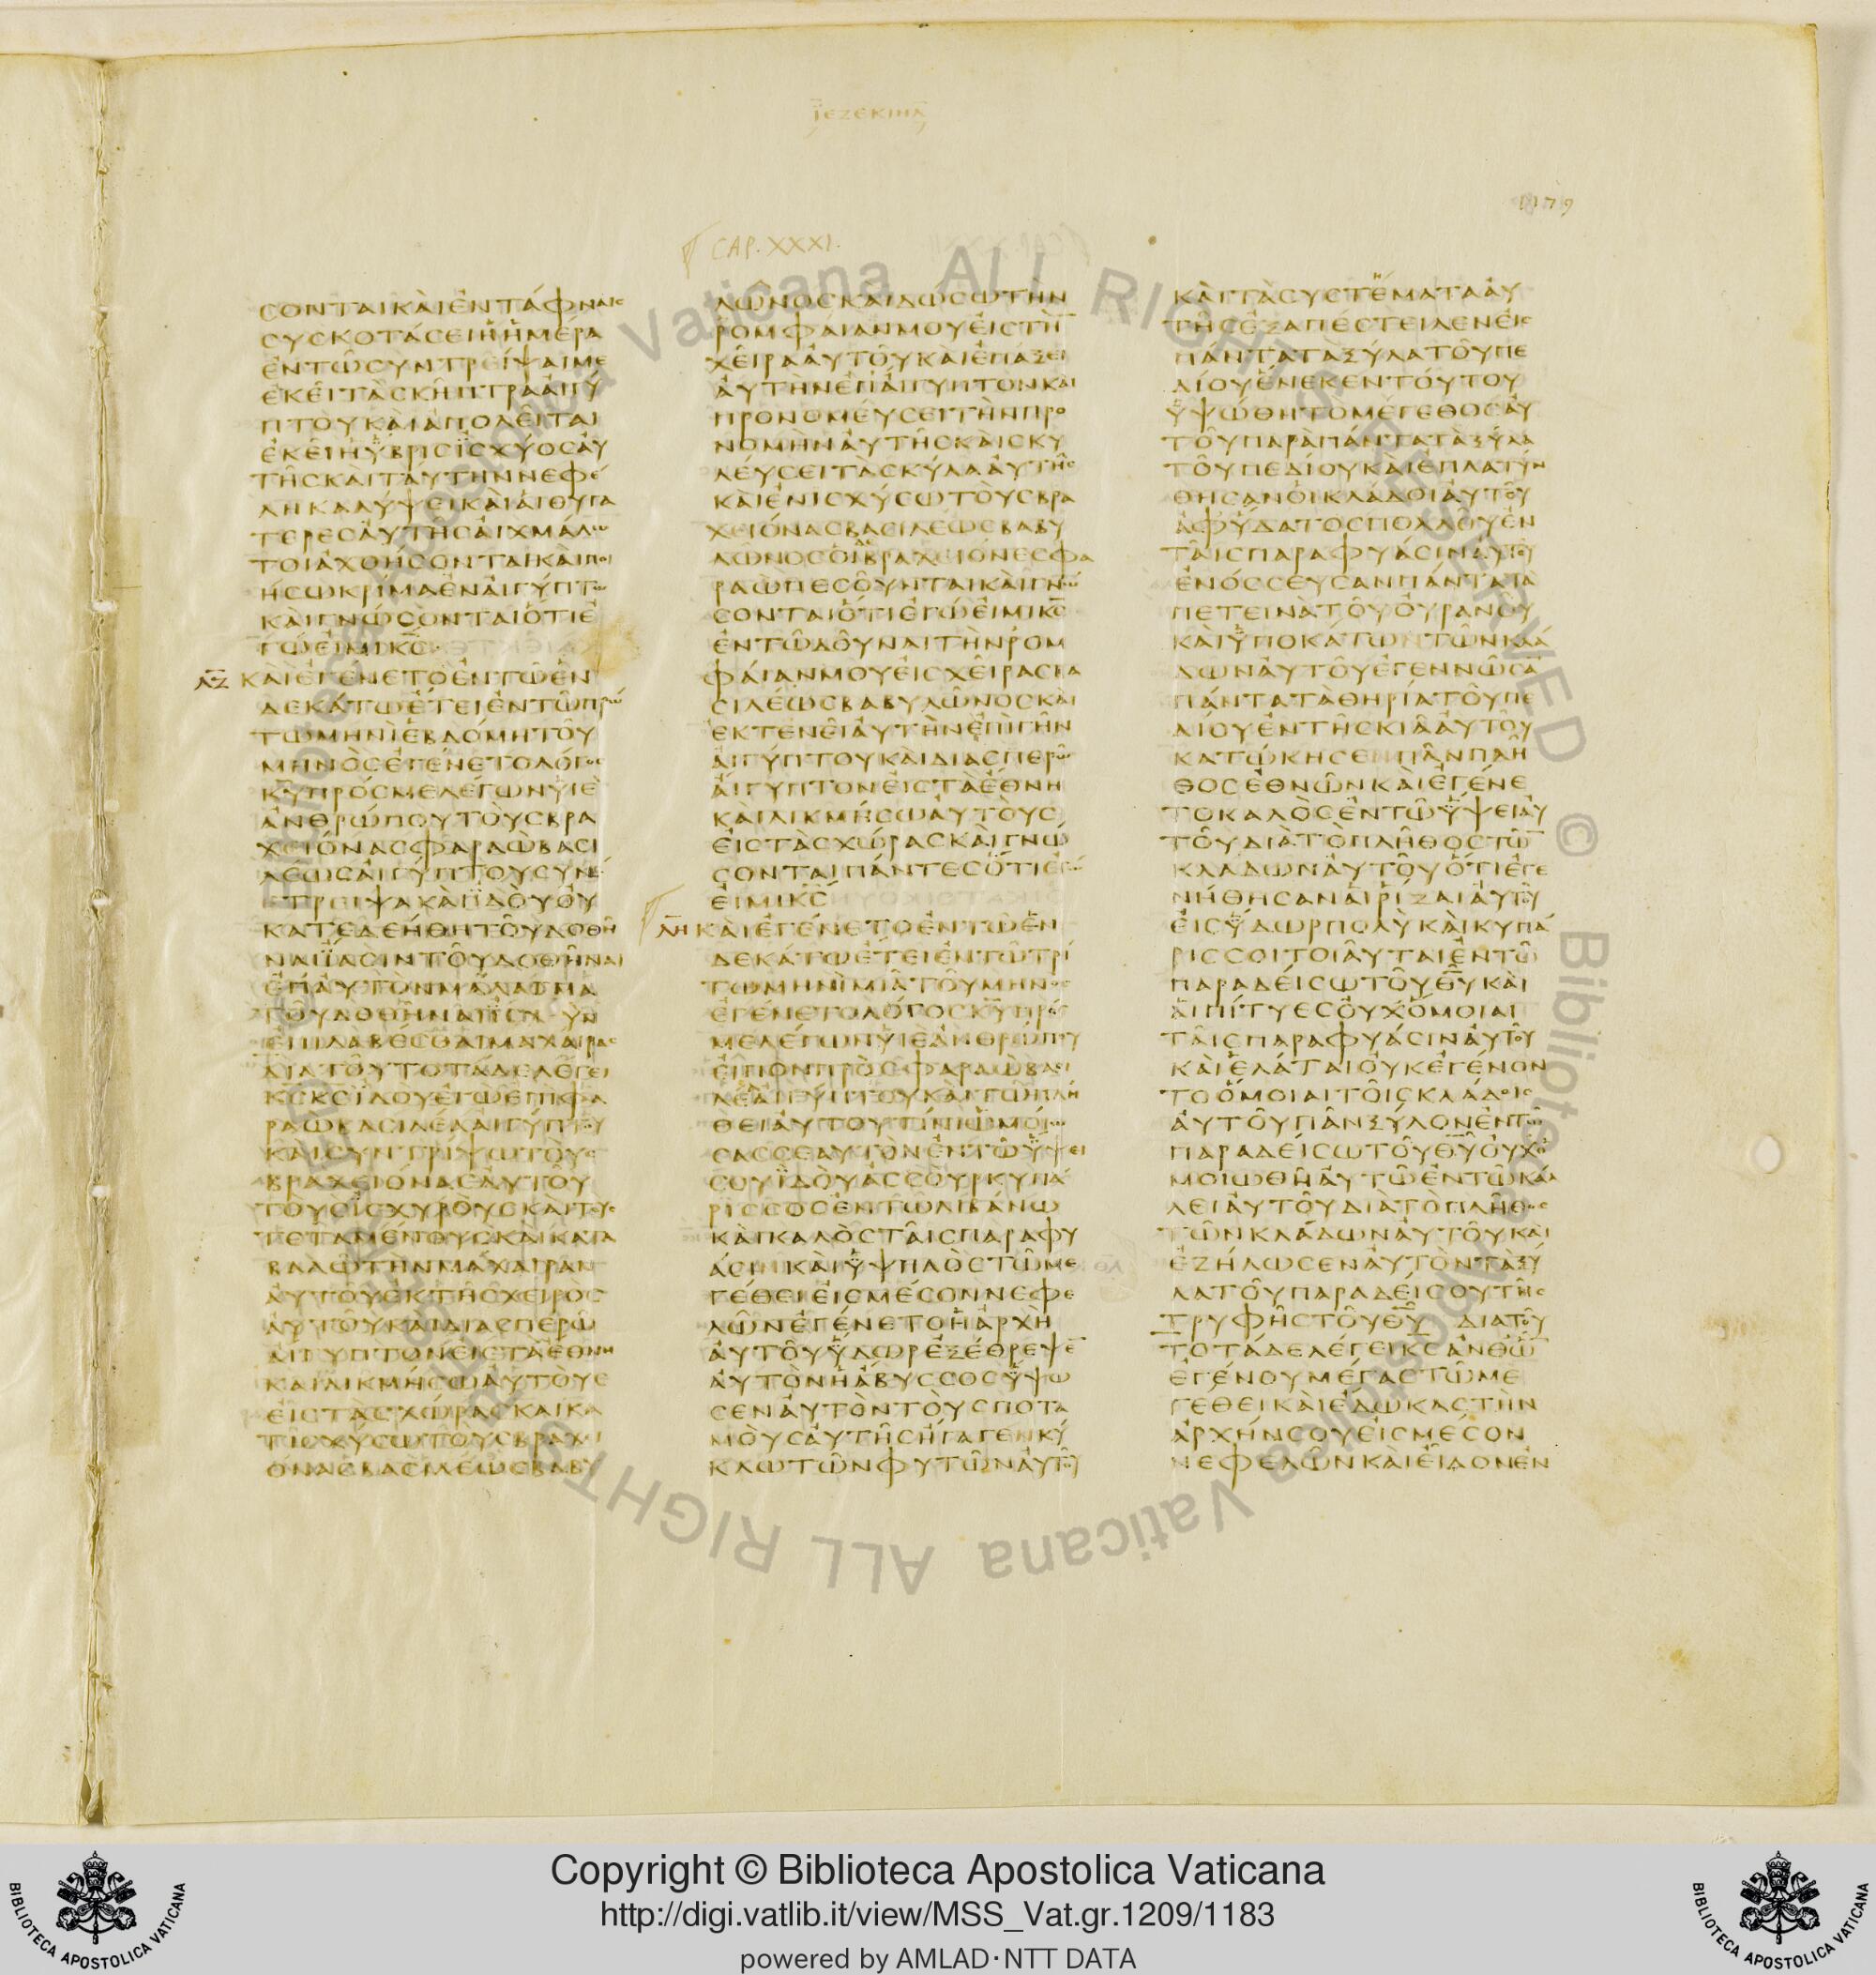 ΙΕΖΕΚΙΗΛ
1179
CAP. XXXI.
ϹΟΝΤΑΙΚΑΙΕΝΤΑΦΝΑΙϹ
ϹΥϹΚΟΤΑϹΕΙΗΗΜΕΡΑ
ΕΝΤΩϹΥΝΤΡΕΙΨΑΙΜΕ
ΕΚΕΙΤΑϹΚΗΠΤΡΑΑΙΓΥ
ΠΤΟΥΚΑΙΑΠΟΛΕΙΤΑΙ
ΕΚΕΙΗΥΒΡΙϹΙϹΧΥΟϹΑΥ
ΤΗϹΚΑΙΤΑΥΤΗΝΝΕΦΕ
ΛΗΚΑΛΥΨΕΙΚΑΙΑΙΘΥΓΑ
ΤΕΡΕϹΑΥΤΗϹΑΙΧΜΑΛΩ
ΤΟΙΑΧΘΗϹΟΝΤΑΙΚΑΙΠΟΙ
ΗϹΩΚΡΙΜΑΕΝΑΙΓΥΠΤΩ
ΚΑΙΓΝΩϹΟΝΤΑΙΟΤΙΕ
ΓΩΕΙΜΙΚϹ
ΛΖ ΚΑΙΕΓΕΝΕΤΟΕΝΤΩΕΝ
ΔΕΚΑΤΩΕΤΕΙΕΝΤΩΠΡΩ
ΤΩΜΗΝΙΕΒΔΟΜΗΤΟΥ
ΜΗΝΟϹΕΓΕΝΕΤΟΛΟΓΟϹ
ΚΥΠΡΟϹΜΕΛΕΓΩΝΥΙΕ
ΑΝΘΡΩΠΟΥΤΟΥϹΒΡΑ
ΧΕΙΟΝΑϹΦΑΡΑΩΒΑϹΙ
ΛΕΩϹΑΙΓΥΠΤΟΥϹΥΝΕ
ΤΡΕΙΨΑΚΑΙΙΔΟΥΟΥ
ΚΑΤΕΔΕΗΘΗΤΟΥΔΟΘΗ
ΝΑΙΙΑϹΙΝΤΟΥΔΟΘΗΝΑΙ
ΕΠΑΥΤΟΝΜΑΛΑΓΜΑ
ΤΟΥΔΟΘΗΝΑΙΙϹΧΥΝ
ΕΠΙΛΑΒΕϹΘΑΙΜΑΧΑΙΡΑϹ
ΔΙΑΤΟΥΤΟΤΑΔΕΛΕΓΕΙ
ΚϹΚϹΙΔΟΥΕΓΩΕΠΙΦΑ
ΡΑΩΒΑϹΙΛΕΑΑΙΓΥΠΤΟΥ
ΚΑΙϹΥΝΤΡΙΨΩΤΟΥϹ
ΒΡΑΧΕΙΟΝΑϹΑΥΤΟΥ
ΤΟΥϹΙϹΧΥΡΟΥϹΚΑΙΤΟΥϹ
ΤΕΤΑΜΕΝΟΥϹΚΑΙΚΑΤΑ
ΒΑΛΩΤΗΝΜΑΧΑΙΡΑΝ
ΑΥΤΟΥΕΚΤΗϹΧΕΙΡΟϹ
ΑΥΤΟΥΚΑΙΔΙΑϹΠΕΡΩ
ΑΙΓΥΠΤΟΝΕΙϹΤΑΕΘΝΗ
ΚΑΙΛΙΚΜΗϹΩΑΥΤΟΥϹ
ΕΙϹΤΑϹΧΩΡΑϹΚΑΙΚΑ
ΤΙϹΧΥϹΩΤΟΥϹΒΡΑΧΙ
ΟΝΑϹΒΑϹΙΛΕΩϹΒΑΒΥ
ΛΩΝΟϹΚΑΙΔΩϹΩΤΗΝ
ΡΟΜΦΑΙΑΝΜΟΥΕΙϹΤΗ
ΧΕΙΡΑΑΥΤΟΥΚΑΙΕΠΑΞΕΙ
ΑΥΤΗΝΕΠΑΙΓΥΠΤΟΝΚΑΙ
ΠΡΟΝΟΜΕΥϹΕΙΤΗΝΠΡΟ
ΝΟΜΗΝΑΥΤΗϹΚΑΙϹΚΥ
ΛΕΥϹΕΙΤΑϹΚΥΛΑΑΥΤΗϹ
ΚΑΙΕΝΙϹΧΥϹΩΤΟΥϹΒΡΑ
ΧΕΙΟΝΑϹΒΑϹΙΛΕΩϹΒΑΒΥ
ΛΩΝΟϹΟΙΒΡΑΧΕΙΟΝΕϹΦΑ
ΡΑΩΠΕϹΟΥΝΤΑΙΚΑΙΓΝΩ
ϹΟΝΤΑΙΟΤΙΕΓΩΕΙΜΙΚϹ
ΕΝΤΩΔΟΥΝΑΙΤΗΝΡΟΜ
ΦΑΙΑΝΜΟΥΕΙϹΧΕΙΡΑϹΒΑ
ϹΙΛΕΩϹΒΑΒΥΛΩΝΟϹΚΑΙ
ΕΚΤΕΝΕΙΑΥΤΗΝΕΠΙΓΗΝ
ΑΙΓΥΠΤΟΥΚΑΙΔΙΑϹΠΕΡΩ
ΑΙΓΥΠΤΟΝΕΙϹΤΑΕΘΝΗ
ΚΑΙΛΙΚΜΗϹΩΑΥΤΟΥϹ
ΕΙϹΤΑϹΧΩΡΑϹΚΑΙΓΝΩ
ϹΟΝΤΑΙΠΑΝΤΕϹΟΤΙΕΓΩ
ΕΙΜΙΚϹ
ΛΗ ΚΑΙΕΓΕΝΕΤΟΕΝΤΩΕΝ
ΔΕΚΑΤΩΕΤΕΙΕΝΤΩΤΡΙ
ΤΩΜΗΝΙΜΙΑΤΟΥΜΗΝΟϹ
ΕΓΕΝΕΤΟΛΟΓΟϹΚΥΠΡΟϹ
ΜΕΛΕΓΩΝΥΙΕΑΝΘΡΩΠΟΥ
ΕΙΠΟΝΠΡΟϹΦΑΡΑΩΒΑϹΙ
ΛΕΑΑΙΓΥΠΤΟΥΚΑΙΤΩΠΛΗ
ΘΕΙΑΥΤΟΥΤΙΝΙΩΜΟΙΩ
ϹΑϹϹΕΑΥΤΟΝΕΝΤΩΥΨΕΙ
ϹΟΥΙΔΟΥΑϹϹΟΥΡΚΥΠΑ
ΡΙϹϹΟϹΕΝΤΩΛΙΒΑΝΩ
ΚΑΙΚΑΛΟϹΤΑΙϹΠΑΡΑΦΥ
ΑϹΙΝΚΑΙΥΨΗΛΟϹΤΩΜΕ
ΓΕΘΕΙΕΙϹΜΕϹΟΝΝΕΦΕ
ΛΩΝΕΓΕΝΕΤΟΗΑΡΧΗ
ΑΥΤΟΥΥΔΩΡΕΞΕΘΡΕΨΕ
ΑΥΤΟΝΗΑΒΥϹϹΟϹΥΨΩ
ϹΕΝΑΥΤΟΝΤΟΥϹΠΟΤΑ
ΜΟΥϹΑΥΤΗϹΗΓΑΓΕΝΚΥ
ΚΛΩΤΩΝΦΥΤΩΝΑΥΤΟΥ
ΚΑΙΤΑϹΥϹΤΕΜΑΤΑΑΥ
ΤΗϹΕΞΑΠΕϹΤΕΙΛΕΝΕΙϹ
ΠΑΝΤΑΤΑΞΥΛΑΤΟΥΠΕ
ΔΙΟΥΕΝΕΚΕΝΤΟΥΤΟΥ
ΥΨΩΘΗΤΟΜΕΓΕΘΟϹΑΥ
ΤΟΥΠΑΡΑΠΑΝΤΑΤΑΞΥΛΑ
ΤΟΥΠΕΔΙΟΥΚΑΙΕΠΛΑΤΥΝ
ΘΗϹΑΝΟΙΚΛΑΔΟΙΑΥΤΟΥ
ΑΦΥΔΑΤΟϹΠΟΛΛΟΥΕΝ
ΤΑΙϹΠΑΡΑΦΥΑϹΙΝΑΥΤΟΥ
ΕΝΟϹϹΕΥϹΑΝΠΑΝΤΑΤΑ
ΠΕΤΕΙΝΑΤΟΥΟΥΡΑΝΟΥ
ΚΑΙΥΠΟΚΑΤΩΤΩΝΚΛΑ
ΔΩΝΑΥΤΟΥΕΓΕΝΝΩϹΑ
ΠΑΝΤΑΤΑΘΗΡΙΑΤΟΥΠΕ
ΔΙΟΥΕΝΤΗϹΚΙΑΑΥΤΟΥ
ΚΑΤΩΚΗϹΕΝΠΑΝΠΛΗ
ΘΟϹΕΘΝΩΝΚΑΙΕΓΕΝΕ
ΤΟΚΑΛΟϹΕΝΤΩΥΨΕΙΑΥ
ΤΟΥΔΙΑΤΟΠΛΗΘΟϹΤΩ
ΚΛΑΔΩΝΑΥΤΟΥΟΤΙΕΓΕ
ΝΗΘΗϹΑΝΑΙΡΙΖΑΙΑΥΤΟΥ
ΕΙϹΥΔΩΡΠΟΛΥΚΑΙΚΥΠΑ
ΡΙϹϹΟΙΤΟΙΑΥΤΑΙΕΝΤΩ
ΠΑΡΑΔΕΙϹΩΤΟΥΘΥΚΑΙ
ΑΙΠΙΤΥΕϹΟΥΧΟΜΟΙΑΙ
ΤΑΙϹΠΑΡΑΦΥΑϹΙΝΑΥΤΟΥ
ΚΑΙΕΛΑΤΑΙΟΥΚΕΓΕΝΟΝ
ΤΟΟΜΟΙΑΙΤΟΙϹΚΛΑΔΟΙϹ
ΑΥΤΟΥΠΑΝΞΥΛΟΝΕΝΤΩ
ΠΑΡΑΔΕΙϹΩΤΟΥΘΥΟΥΧΟ
ΜΟΙΩΘΗΑΥΤΩΕΝΤΩΚΑΛ
ΛΕΙΑΥΤΟΥΔΙΑΤΟΠΛΗΘΟϹ
ΤΩΝΚΛΑΔΩΝΑΥΤΟΥΚΑΙ
ΕΖΗΛΩϹΕΝΑΥΤΟΝΤΑΞΥ
ΛΑΤΟΥΠΑΡΑΔΕΙϹΟΥΤΗϹ
ΤΡΥΦΗϹΤΟΥΘΥ ΔΙΑΤΟΥ
ΤΟΤΑΔΕΛΕΓΕΙΚϹΑΝΘΩ
ΕΓΕΝΟΥΜΕΓΑϹΤΩΜΕ
ΓΕΘΕΙΚΑΙΕΔΩΚΑϹΤΗΝ
ΑΡΧΗΝϹΟΥΕΙϹΜΕϹΟΝ
ΝΕΦΕΛΩΝΚΑΙΕΙΔΟΝΕΝ
Copyright © Biblioteca Apostolica Vaticana
http://digi.vatlib.it/view/MSS_Vat.gr.1209/1183
powered by AMLAD·NTT DATA
BIBLIOTECA APOSTOLICA VATICANA
BIBLIOTECA APOSTOLICA VATICANA